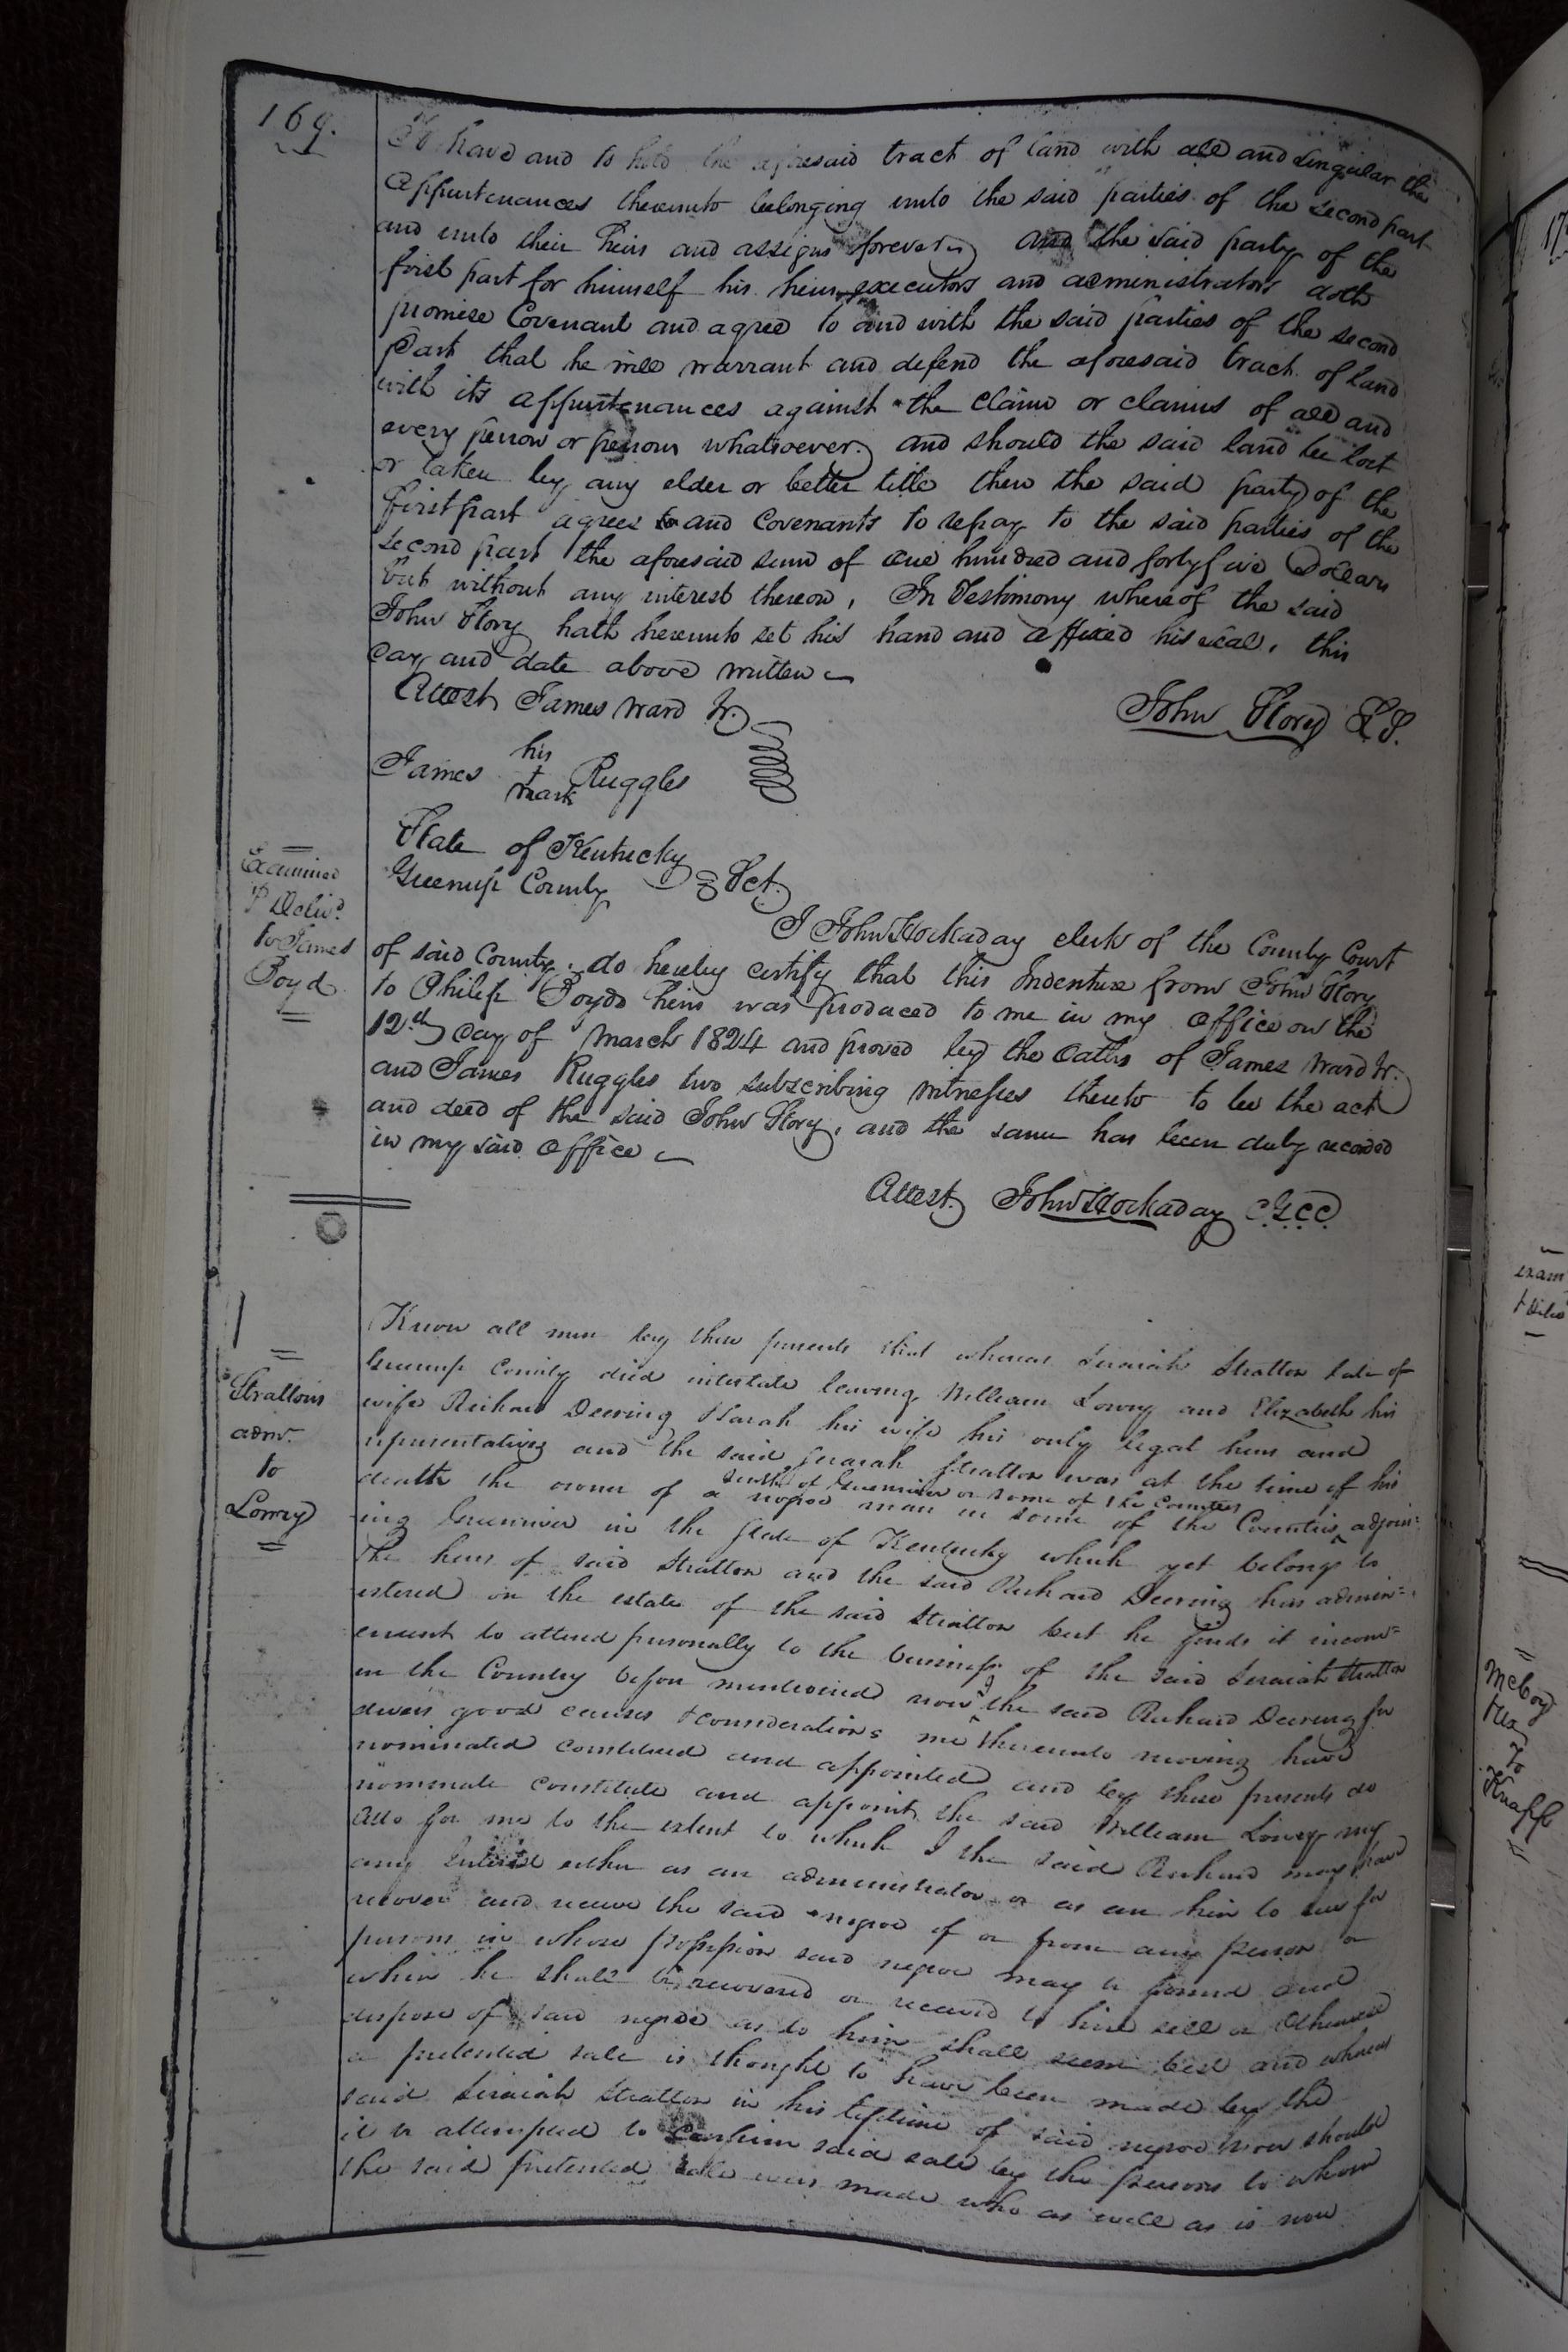 169.
To have and to hold the aforesaid tract of land with all and singular the
appurtenances thereunto belonging unto the said parties of the second part
and unto their heirs and assigns forever and the said party of the
first part for himself his heirs executors and administrators doth
promise Covenant and agree to and with the said parties of the second
part that he will warrant and defend the aforesaid tract of land
with its appurtenances against the claim or claims of all and
every person or persons whatsoever. and should the said land be lost
or taken by any elder or better title then the said party of the
first part agrees to and Covenants to repay to the said parties of the
second part the aforesaid sum of one hundred and forty five Dollars
but without any interest thereon, In Testimony whereof the said
John Story hath hereunto set his hand and affixed his seal, this
day and date above written
Attest James Ward Jr.
John Story L.S.
his
James + Ruggles
mark
State of Kentucky
Greenup County Sct.
Examined
& Deliv.d
to James
Boyd
I John Hockaday clerk of the County Court
of said County, do hereby certify that this Indenture from John Story
to Philip Boyds heirs was produced to me in my office on the
12th day of March 1824 and proved by the Oaths of James Ward Jr.
and James Ruggles two subscribing witnesses thereto to be the act
and deed of the said John Story, and the same has been duly recorded
in my said office
Attest. John Hockaday C.G.C.C.
Strattons
adm.
to
Lowry
Know all men by these presents that whereas Seraiah Stratton late of
Greenup County died intestate leaving William Lowry and Elizabeth his
wife Richard Deering & Sarah his wife his only legal heirs and
representatives and the said Seraiah Stratton was at the time of his
south of Greenriver or some of the Counties
death the owner of a negroe man in some of the Counties adjoin=
ing Greenriver in the State of Kentucky which yet belongs to
the heirs of said Stratton and the said Richard Deering has admin=
istered on the estate of the said Stratton but he finds it inconv=
enient to attend personally to the business of the said Seraiah Stratton
in the Country before mentioned now I the said Richard Deering for
divers good causes & considerations me thereunto moving have
nominated constituted and appointed and by these presents do
nominate constitute and appoint the said William Lowry my
atto for me to the extent to which I the said Richard may have
any interest either as an administrator or as an heir to sue for
recover and receive the said negroe of or from any person or
persons in whose possession said negroe may be found and
when he shall be recovered or received to hire sell or otherwise
dispose of said negroe as to him shall seem best and whereas
a pretended sale is thought to have been made by the
said Seraiah Stratton in his lifetime of said negroe now should
it be attempted to confirm said sale by the persons to whom
the said pretended sale was made who as well as is now
17
exam
& Deliv
McCoy
&ux
to
Knapp